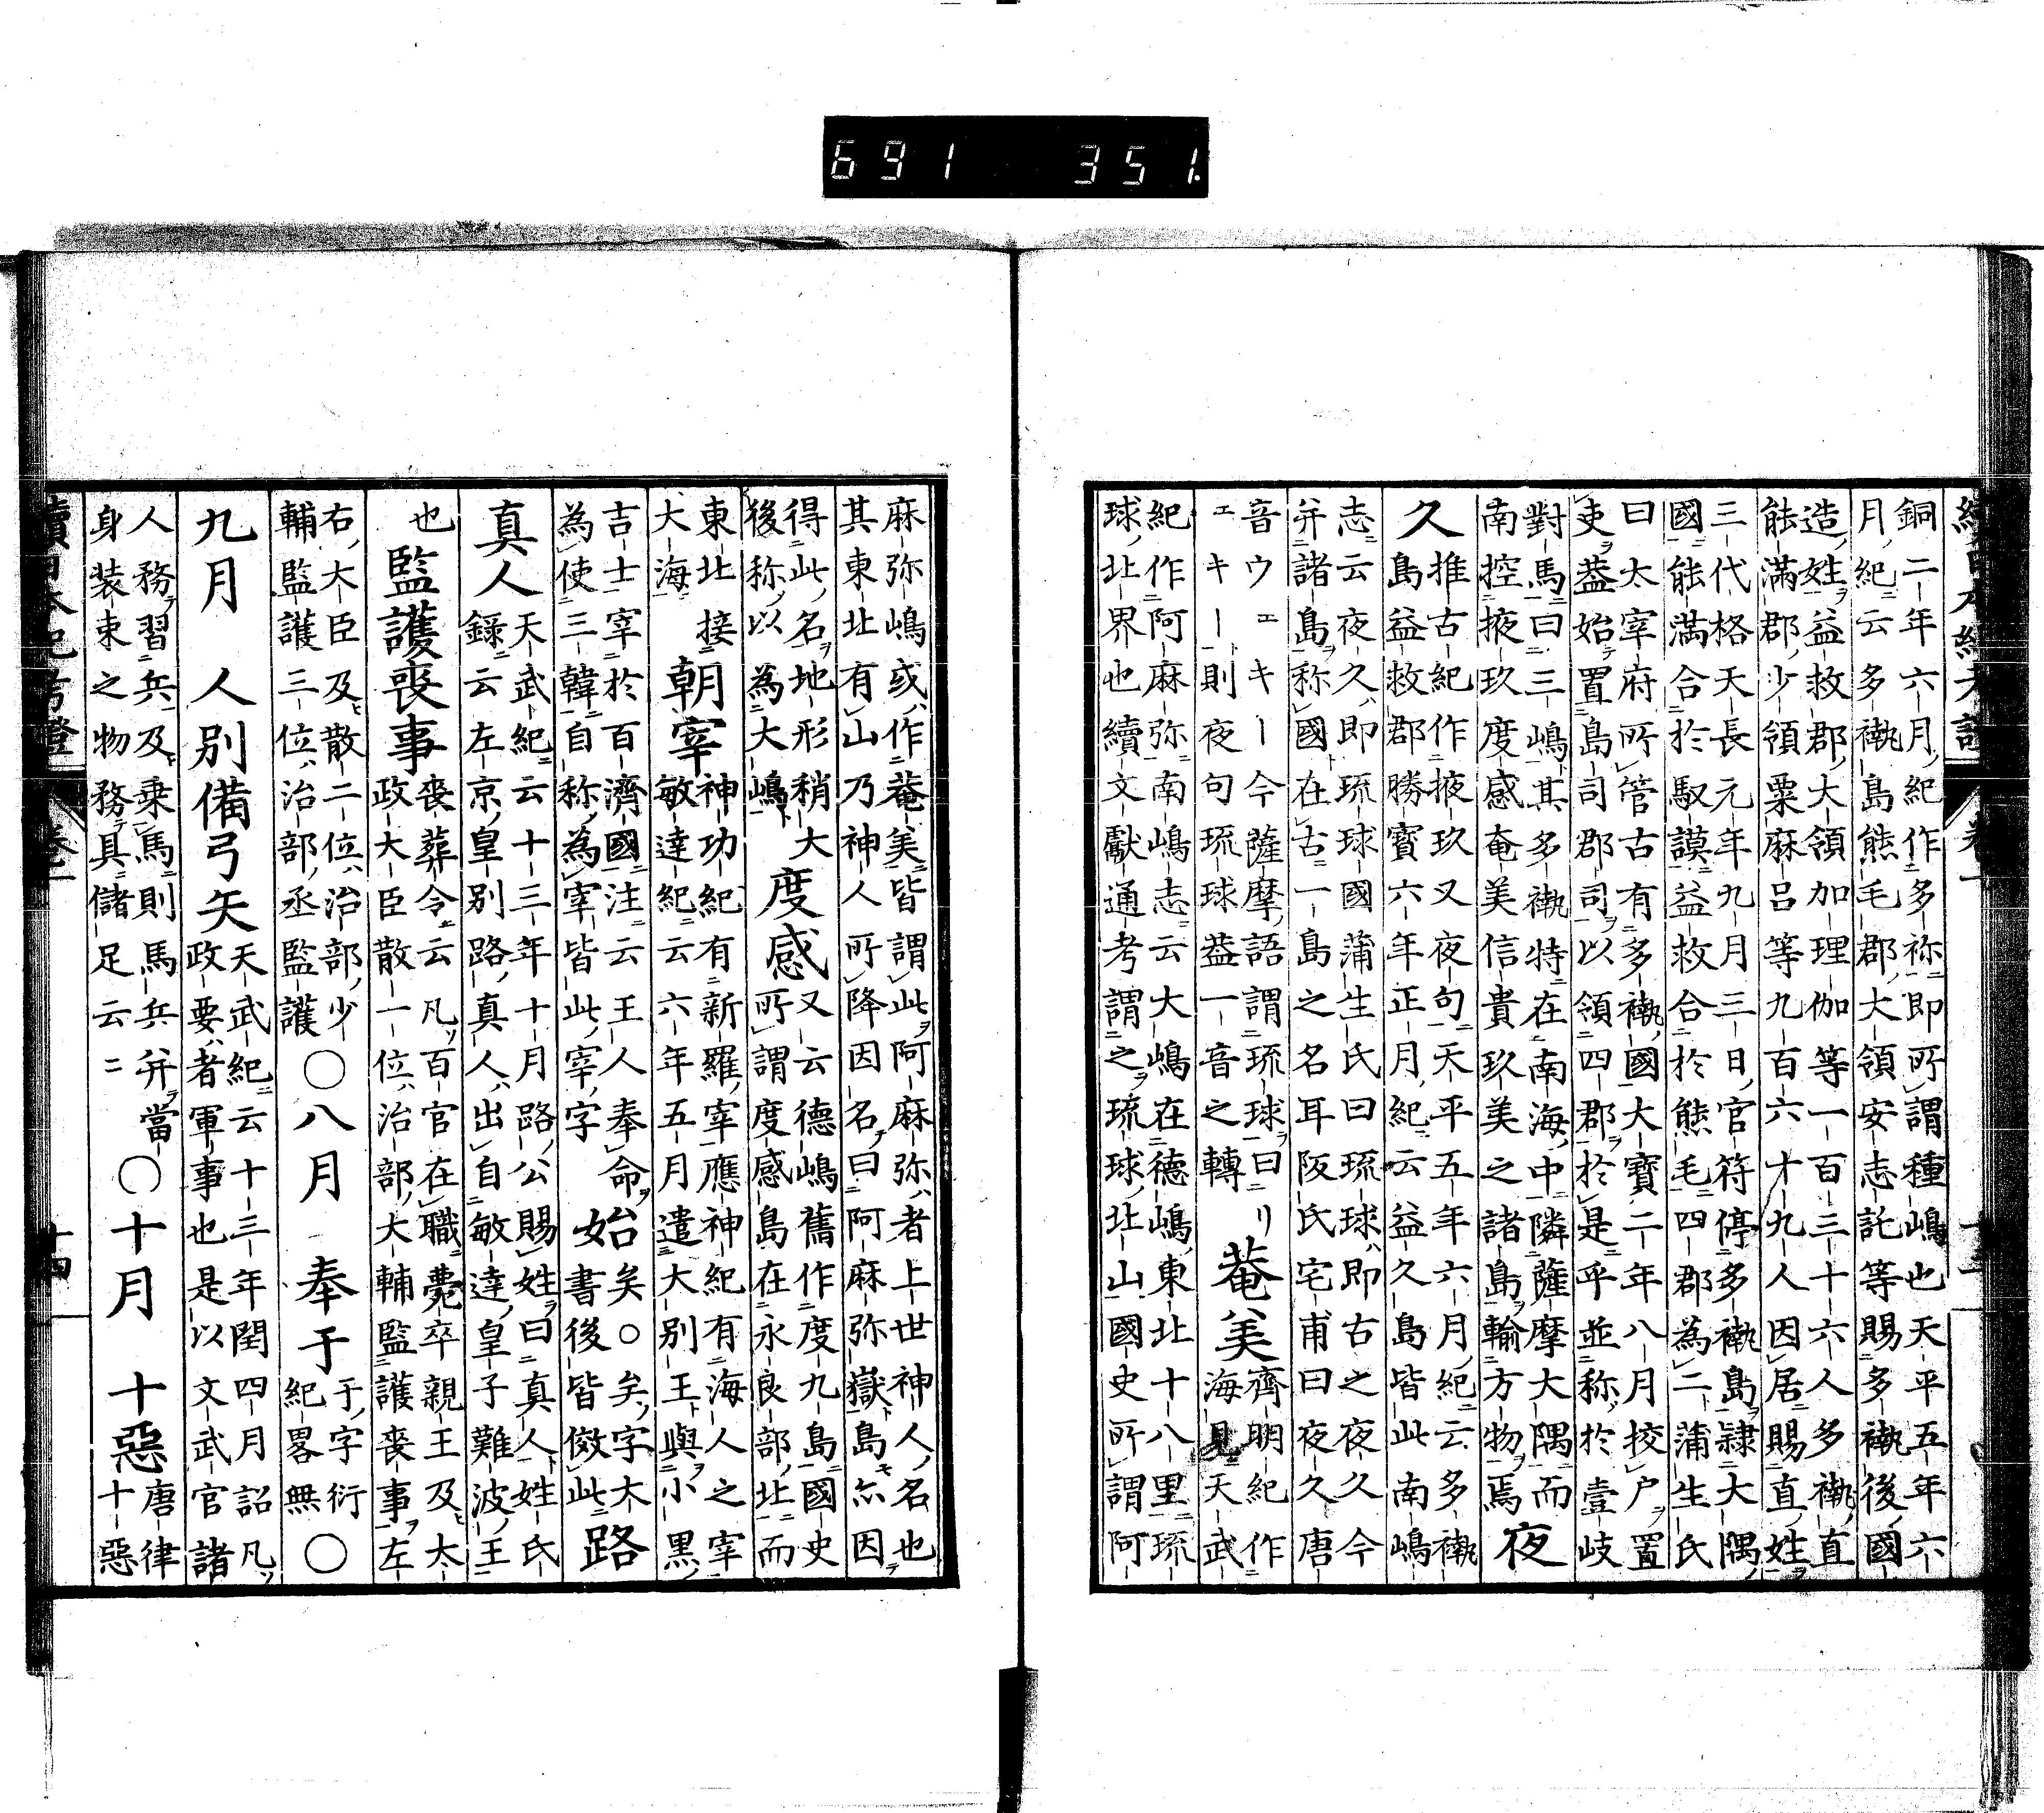 691 351.
銅二年六月紀作多祢即所謂種嶋也天平五年六
月紀云多褹島熊毛郡大領安志託等賜多褹後國
造姓益救郡大領加理伽等一百三十六人多褹直
能満郡少領粟麻呂等九百六十九人因居賜直姓
三代格天長元年九月三日官符停多褹島隷大隅
國能満合於馭謨益救合於熊毛四郡為二蒲生氏
曰大宰府所管古有多褹國大寶二年八月挍户置
吏葢始置島司郡司以領四郡於是乎並称於壹岐
對馬曰三嶋其多褹特在南海中隣薩摩大隅而
南控掖玖度感奄美信貴玖美之諸島輸方物焉夜
久推古紀作掖玖又夜句天平五年六月紀云多褹
島益救郡勝寶六年正月紀云益久島皆此南嶋
志云夜久即琉球國蒲生氏曰琉球即古之夜久今
并諸島称國在古一島之名耳阪氏宅甫曰夜久唐
音ウエキー今薩摩語謂琉球曰リ
エキー則夜句琉球葢一音之轉菴美齊明紀作
海見天武
紀作阿麻弥南嶋志云大嶋在德嶋東北十八里琉
球北界也續文獻通考謂之琉球北山國史所謂阿
麻弥嶋或作菴美皆謂此阿麻弥者上世神人名也
其東北有山乃神人所降因名曰阿麻弥嶽島亦因
得此名地形稍大
後称以為大嶋度感又云德嶋舊作度九島國史
所謂度感島在永良部北而
東北接
大海朝宰神功紀有新羅宰應神紀有海人之宰
敏達紀云六年五月遣大別王與小黒
吉士宰於百濟國注云王人奉命
為使三韓自称為宰皆此宰字始矣○矣字大
書後皆傚此路
真人天武紀云十三年十月路公賜姓曰真人姓氏
錄云左京皇別路真人出自敏達皇子難波王
也監護喪事喪葬令云凡百官在職薨卒親王及太
政大臣散一位治部大輔監護喪事左
右大臣及散二位治部少
輔監護三位治部丞監護○八月奉于于字衍
紀畧無○
九月人別備弓矢天武紀云十三年閏四月詔凡
政要者軍事也是以文武官諸
人務習兵及乗馬則馬兵并當
身装束之物務具儲足云云○十月十惡唐律
十惡
卷一
十四